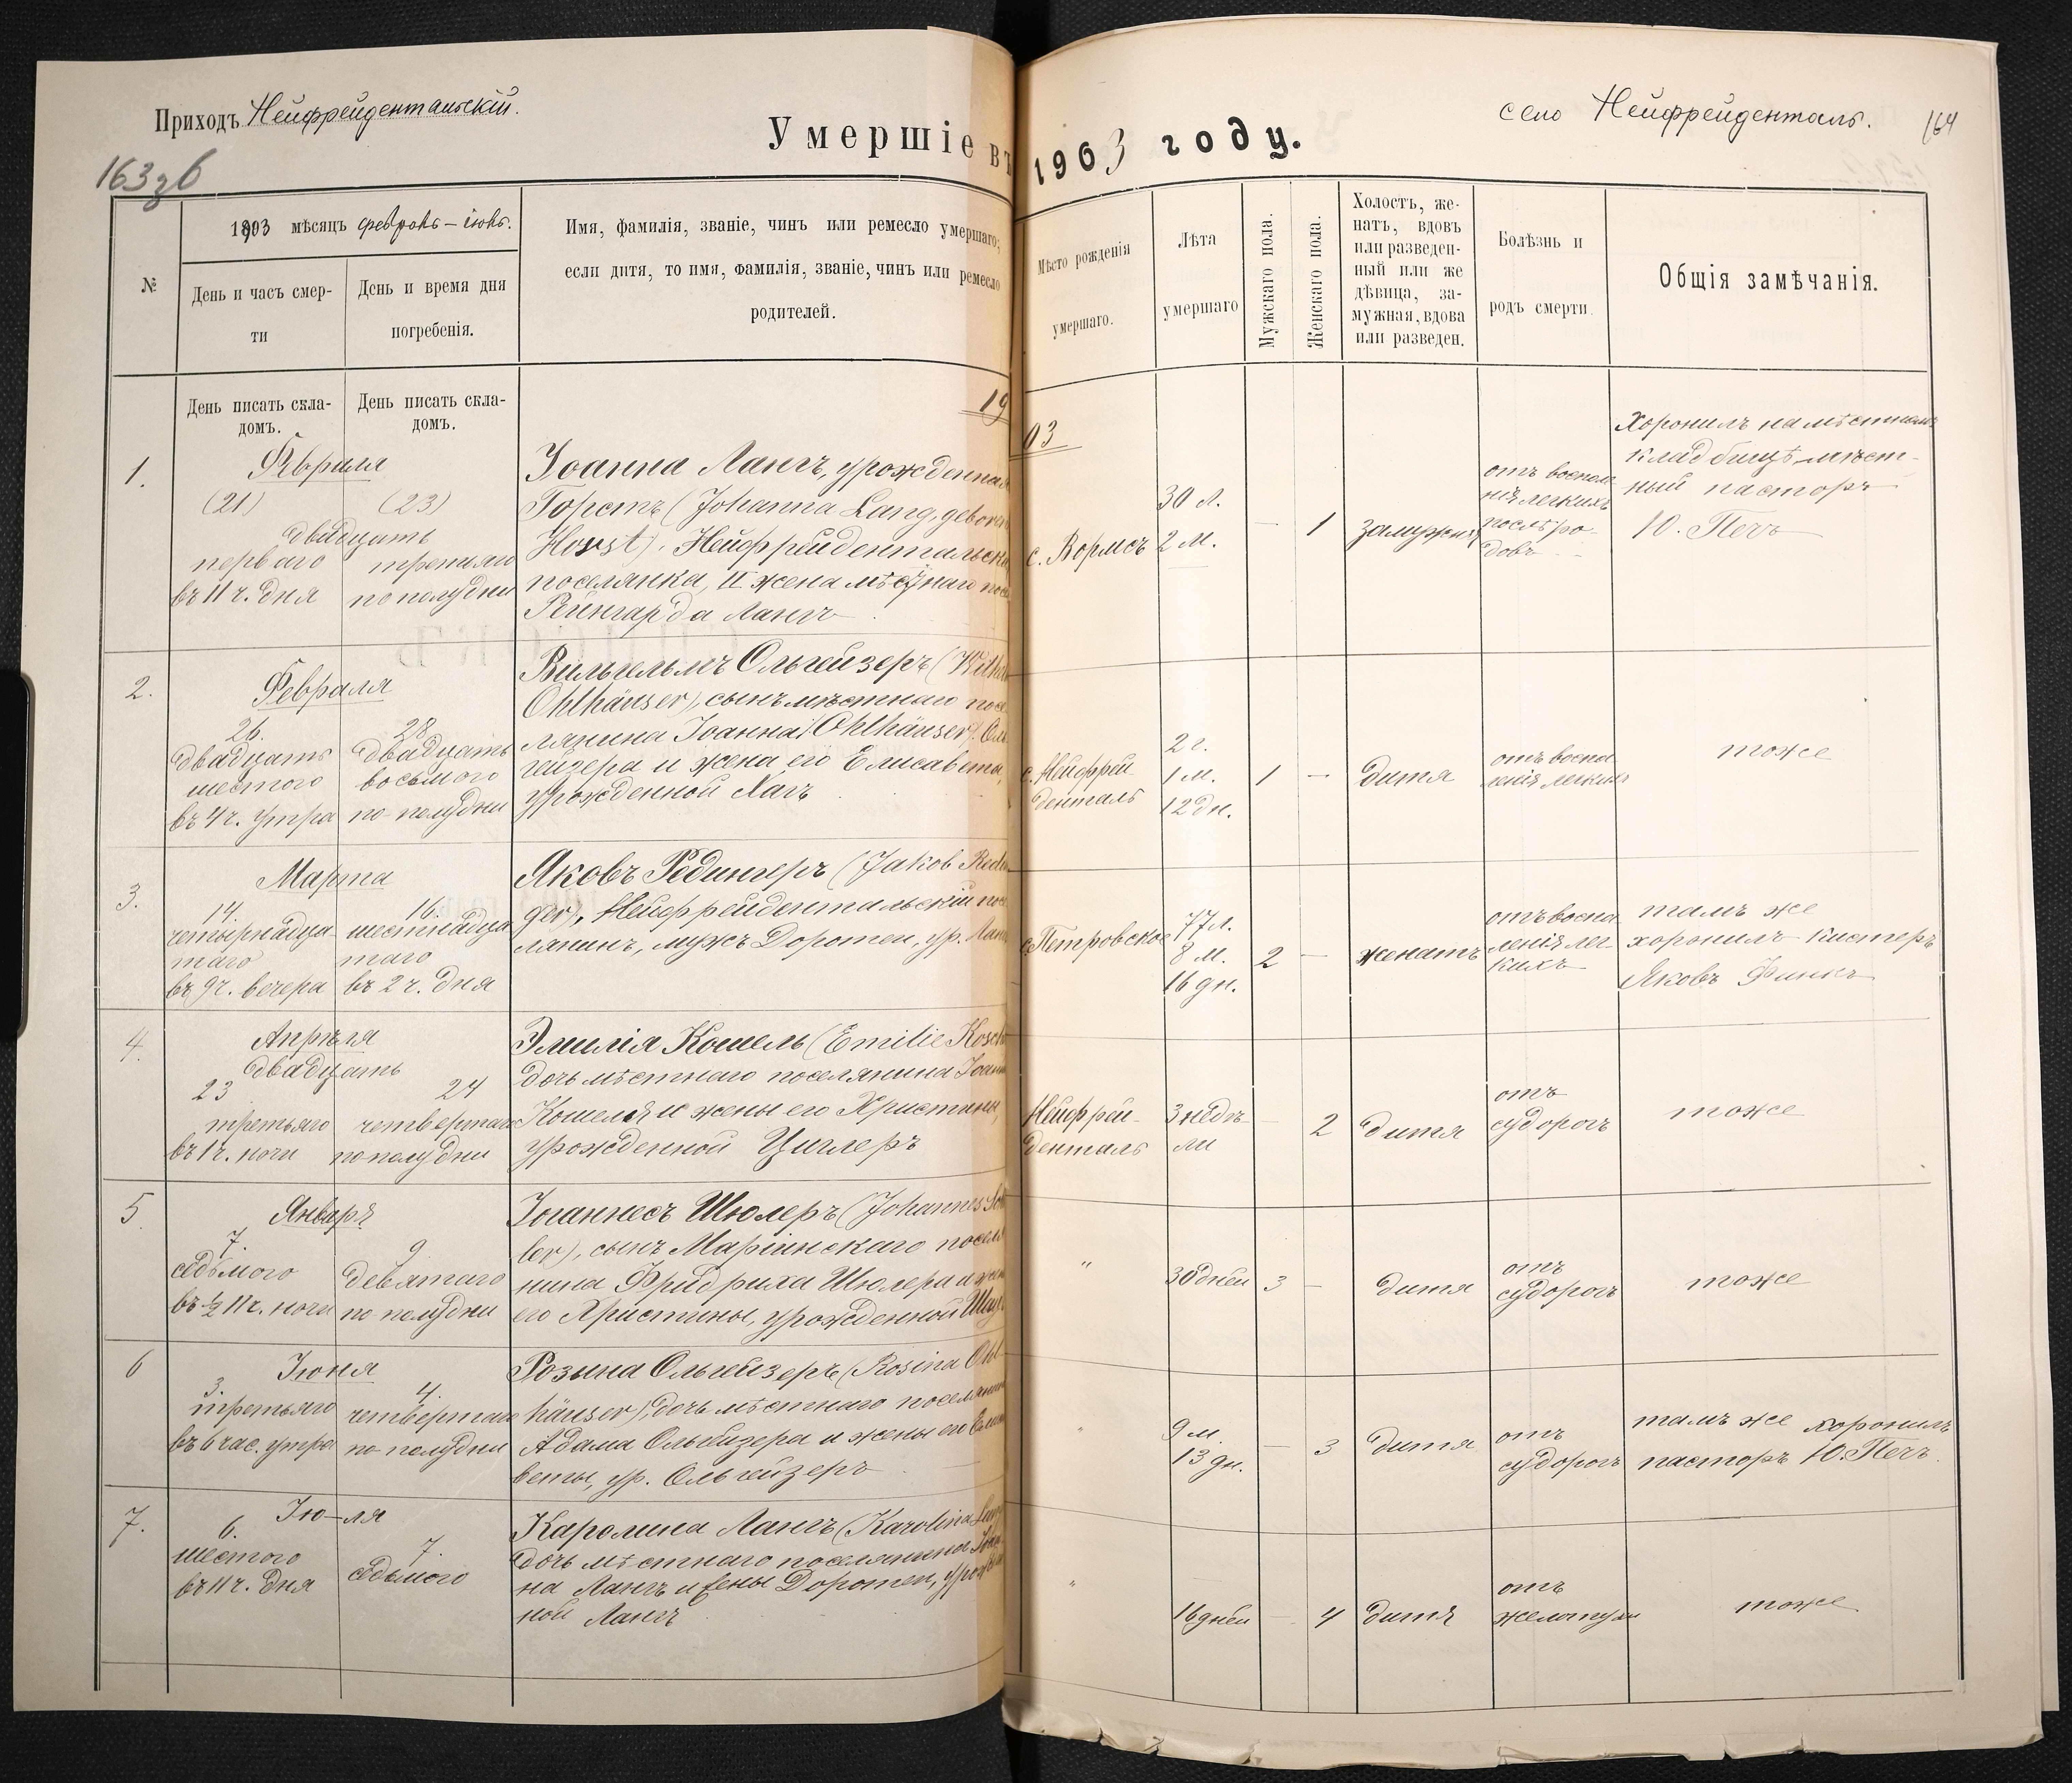 Приходъ Нейфрейдентальскій.
163 зб
Умершіе въ
1903 году.
село Нейфрейденталь.
164
№
1903 мѣсяцъ февраль – іюль.
День и часъ смер-
ти
День и время дня
погребенія.
Имя, фамилія, званіе, чинъ или ремесло умершаго;
если дитя, то имя, фамилія, званіе, чинъ или ремесло
родителей.
Мѣсто рожденія
умершаго.
Лѣта
умершаго
Мужскаго пола.
Женскаго пола.
Холостъ, же-
натъ, вдовъ
или разведен-
ный или же
дѣвица, за-
мужная, вдова
или разведен.
Болѣзнь и
родъ смерти.
Общія замѣчанія.
День писать скла-
домъ.
День писать скла-
домъ.
19
03
1.
Февраля
(21) (23)
двадцать
перваго
въ 11 ч. дня
третьяго
по полудни
Іоанна Лангъ, урожденная
Горстъ (Johanna Lang, geboren
Horst). Нейфрейдентальска
поселянка, II жена мѣстнаго пос
Рейнгарда Лангъ
с. Вормсъ
30 л.
2 м.
—
1
замужняя
отъ воспале-
нія легкихъ
послѣ ро-
довъ
Хоронилъ на мѣстномъ
кладбищѣ мѣст-
ный пасторъ
Ю. Печъ
2.
Февраля
26.
двадцать
шестого
въ 4 ч. утра
28
двадцать
восьмого
по полудни
Вильгельмъ Ольгейзеръ (Wilh
Ohlhäuser), сынъ мѣстнаго посе
лянина Іоанна (Ohlhäuser) Оль
гейзера и жена его Елисавета,
урожденной Хагъ
с. Нейфрей-
денталь
2 г.
1 м.
12 дн.
1
—
дитя
отъ воспа
ленія легкихъ
тоже
3.
Марта
14.
четырнадца-
таго
въ 9 ч. вечера
16.
шестнадца
таго
въ 2 ч. дня
Яковъ Редингеръ (Jakob Redin
ger), Нейфрейдентальскій посе
лянинъ, мужъ Доротеи, ур. Ланг
с. Петровское
77 л.
8 м.
16 дн.
2
—
женатъ
отъ воспа
ленія лег
кихъ
тамъ же
хоронилъ кистеръ
Яковъ Финкъ
4.
Апрѣля
двадцать
23 24
третьяго
въ 1 ч. ночи
четвертаго
по полудни
Эмилія Кошель (Emilie Kosch
дочь мѣстнаго поселянина Іоан
Кошеля и жены его Христины,
урожденной Циглеръ
Нейфрей-
денталь
3 недѣ-
ли
—
2
дитя
отъ
судорогъ
тоже
5.
Января
7.
седьмого
въ ½ 11 ч. ночи
9
девятаго
по полудни
Іоаннесъ Шюлеръ (Johannes Schü
ler), сынъ Маріинскаго поселя
нина Фридриха Шюлера и жен
его Христины, урожденной
"
30 дней
3
—
дитя
отъ
судорогъ
тоже
6
Іюня
3.
третьяго
въ 6 час. утра
4.
четвертаго
по полудни
Розина Ольгейзеръ (Rosina Ohl-
häuser), дочь мѣстнаго поселянина
Адама Ольгейзера и жены его Елиса
веты, ур. Ольгейзеръ
"
9 м.
13 дн.
—
3
дитя
отъ
судорогъ
тамъ же хоронилъ
пасторъ Ю. Печъ.
7.
Ію-ля
6.
шестого
въ 11 ч. дня
7.
седьмого
Каролина Лангъ (Karolina Lang
дочь мѣстнаго поселянина Іоан
на Лангъ и жены Доротеи, урожден
ной Лангъ
"
16 дней
—
4
дитя
отъ
желтухи
тоже